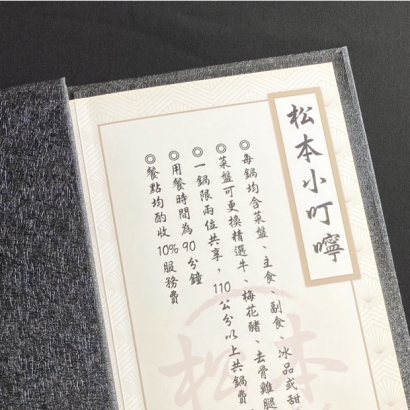 松本小叮嚀
◎每鍋均含菜盤、主食、副食、冰品或甜
◎菜盤可更換精選牛、梅花豬、去骨雞腿
◎一鍋限兩位共享，110公分以上共鍋費
◎用餐時間為90分鐘
◎餐點均酌收10%服務費
松本